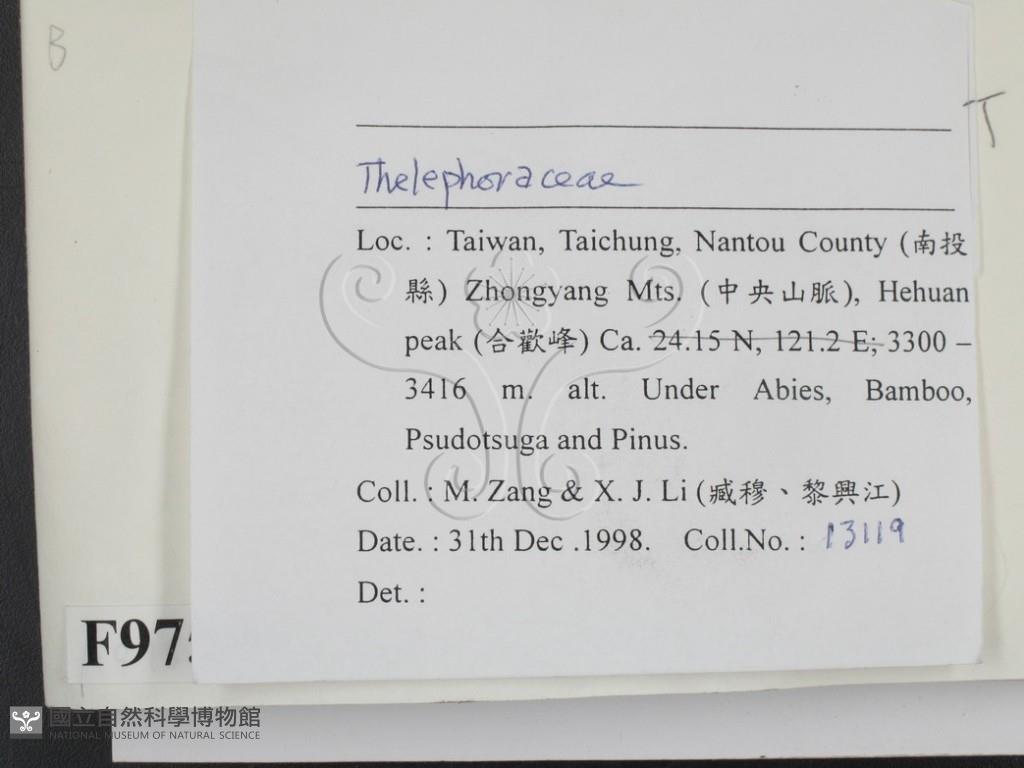 B
T
Thelephoraceae
Loc. : Taiwan, Taichung, Nantou County (南投
縣) Zhongyang Mts. (中央山脈), Hehuan
peak (合歡峰) Ca. 24.15 N, 121.2 E; 3300 –
3416 m. alt. Under Abies, Bamboo,
Psudotsuga and Pinus.
Coll. : M. Zang & X. J. Li (臧穆、黎興江)
Date. : 31th Dec .1998. Coll.No. : 13119
Det. :
F97
國立自然科學博物館
NATIONAL MUSEUM OF NATURAL SCIENCE